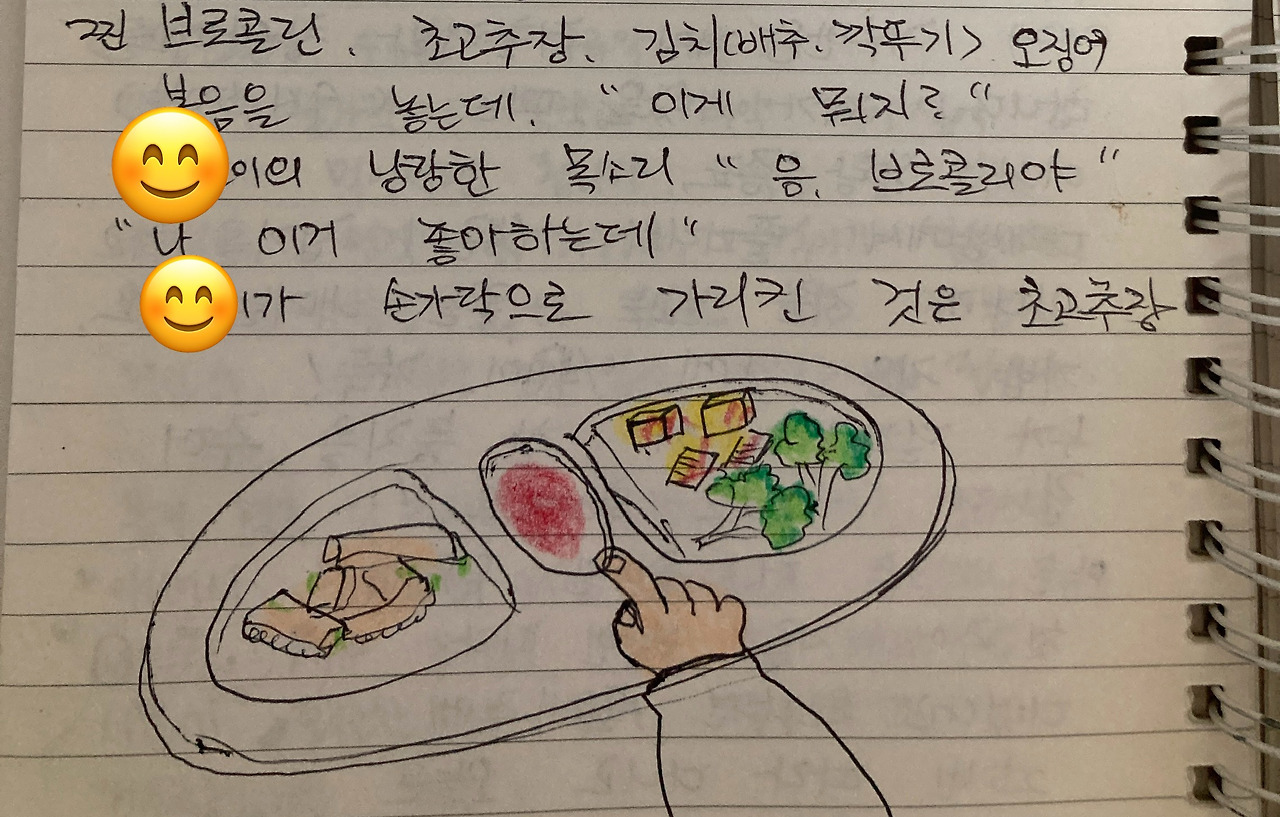 찐 브로콜린. 초고추장. 김치(배추.깍뚜기) 오징어
볶음을 놓는데. "이게 뭐지?"
이의 낭랑한 목소리 "음. 브로콜리야"
"나 이거 좋아하는데"
이가 손가락으로 가리킨 것은 초고추장